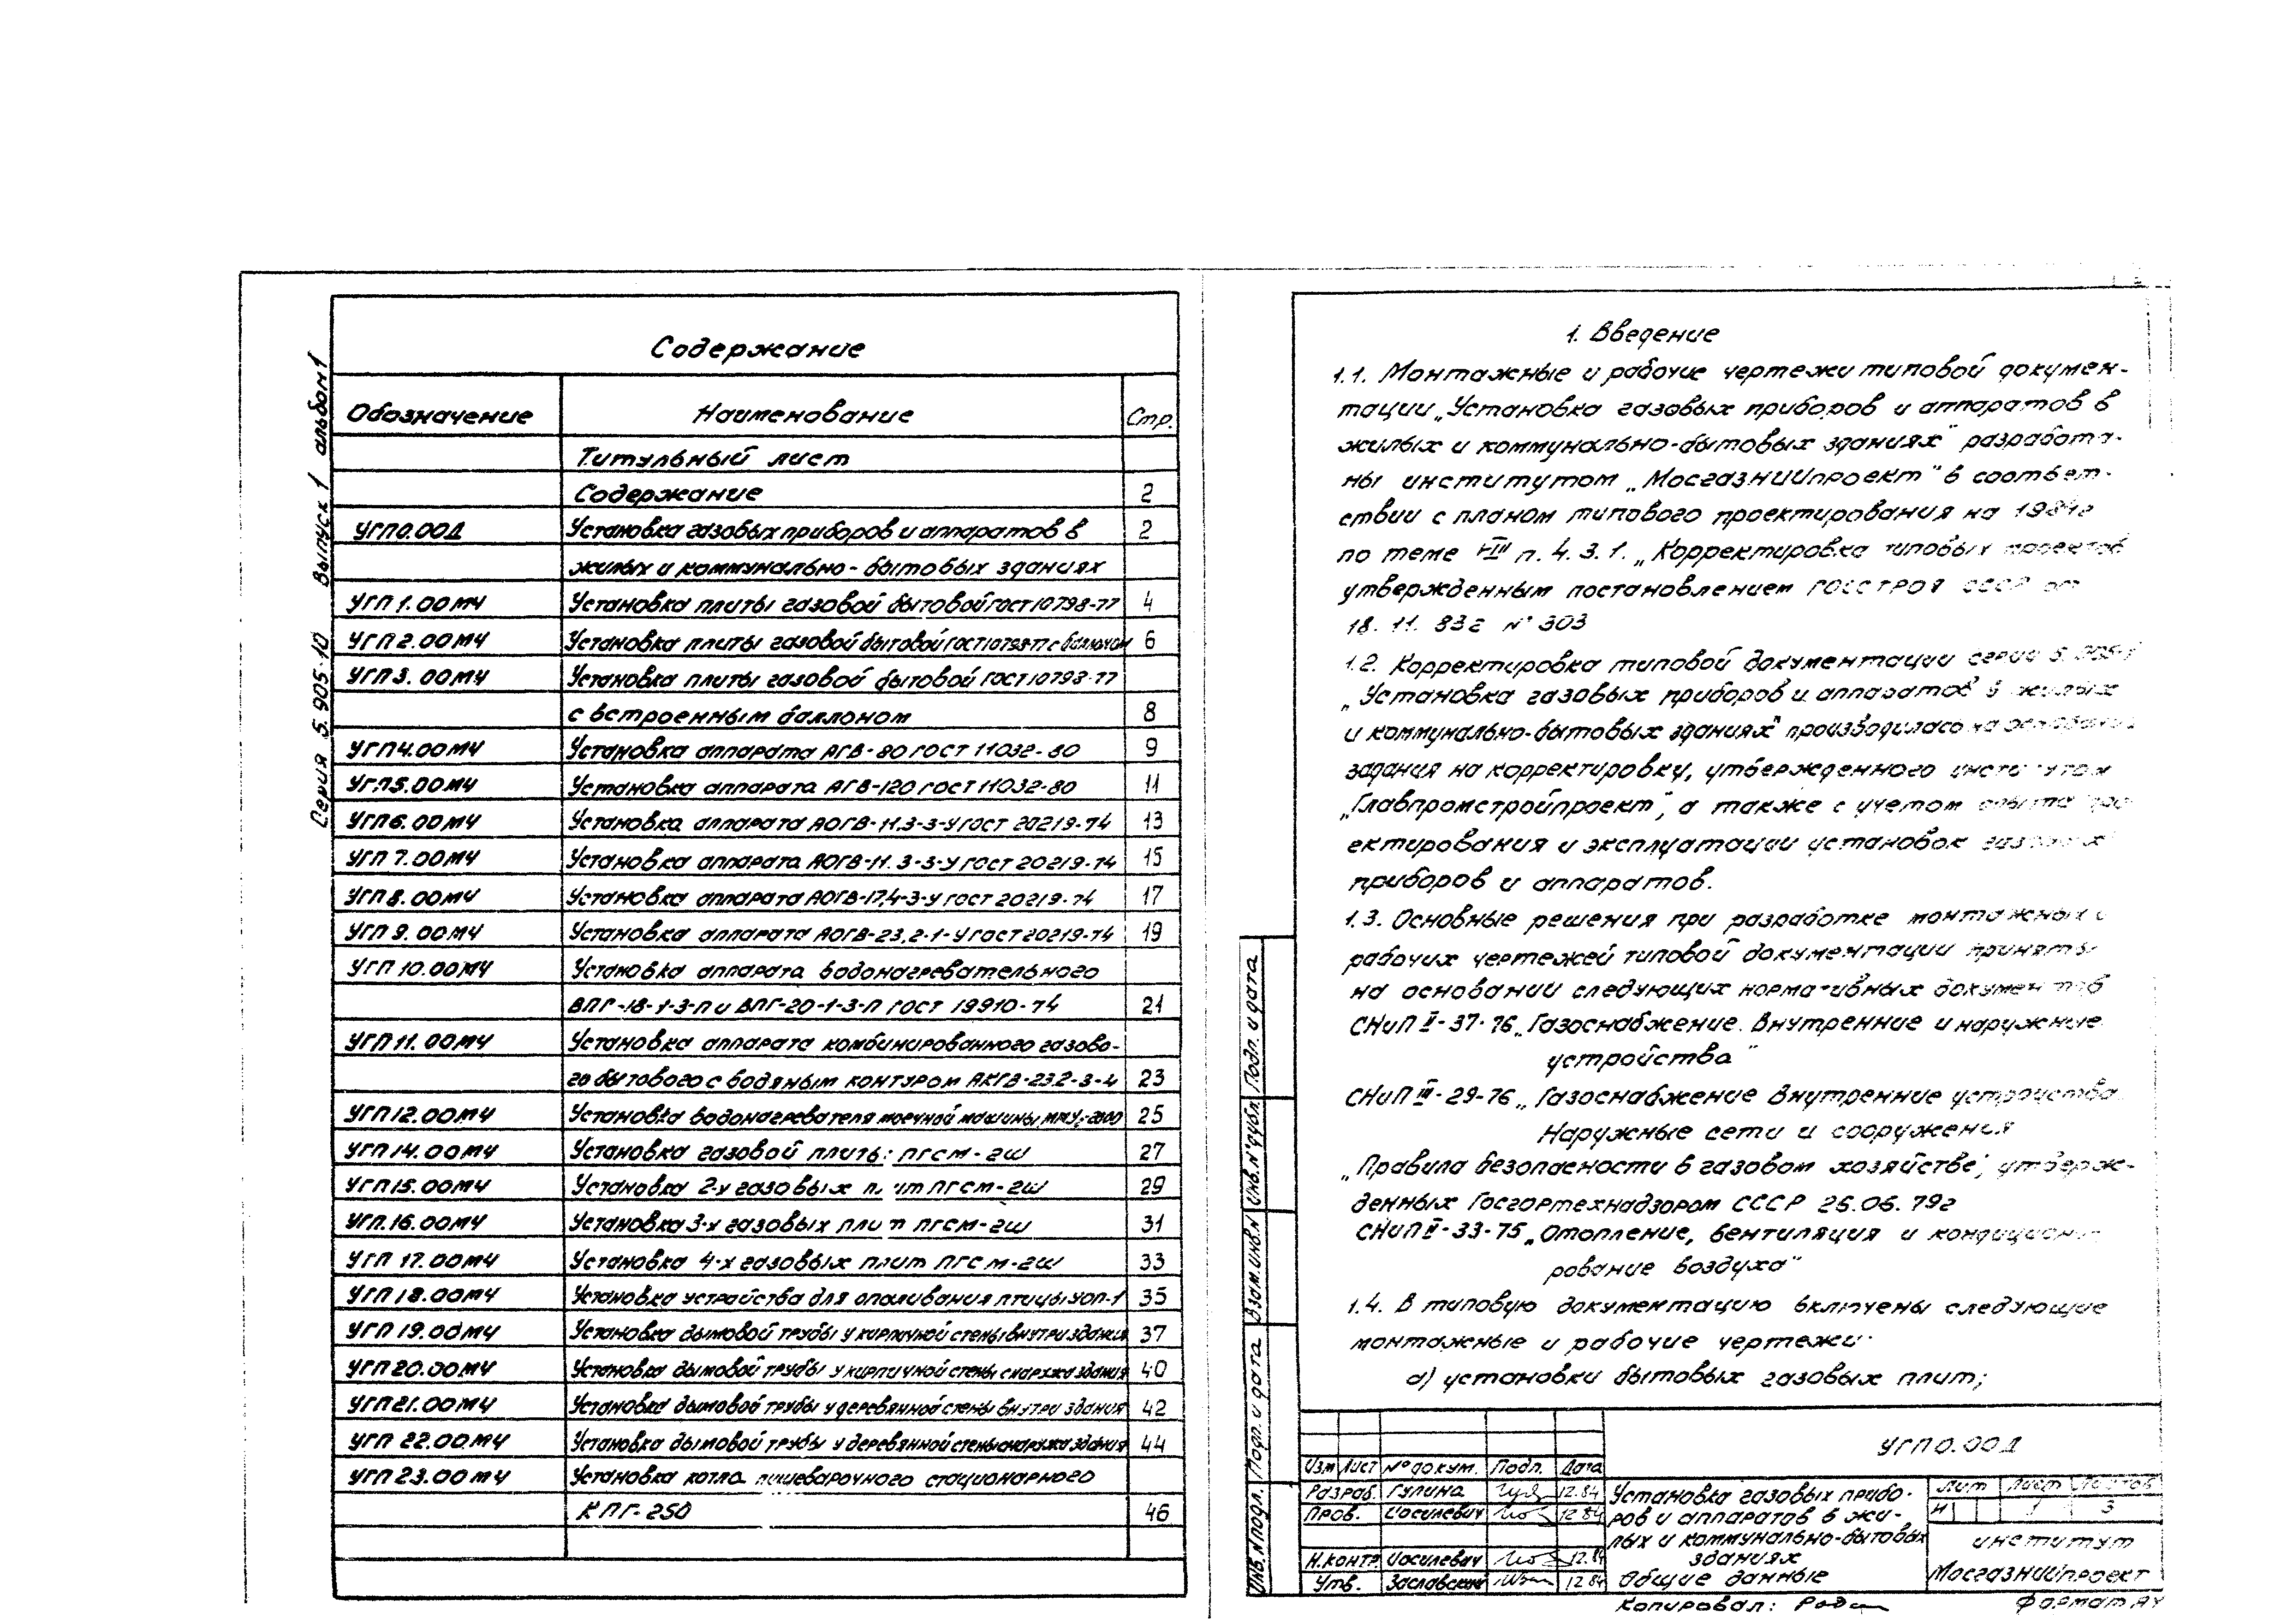 Серия 5.905-10 Выпуск 1 альбом 1
Содержание
Обозначение Наименование Стр.
Титульный лист
Содержание 2
УГП0.00Д Установка газовых приборов и аппаратов в 2
жилых и коммунально-бытовых зданиях
УГП 1.00МЧ Установка плиты газовой бытовой ГОСТ 10798-77 4
УГП 2.00МЧ Установка плиты газовой бытовой ГОСТ 10798-77 с баллоном 6
УГП 3.00МЧ Установка плиты газовой бытовой ГОСТ 10798-77
с встроенным баллоном 8
УГП4.00МЧ Установка аппарата АГВ-80 ГОСТ 11032-80 9
УГП5.00МЧ Установка аппарата АГВ-120 ГОСТ 11032-80 11
УГП6.00МЧ Установка аппарата АОГВ-11.3-3-У ГОСТ 20219-74 13
УГП 7.00МЧ Установка аппарата АОГВ-11.3-3-У ГОСТ 20219-74 15
УГП 8.00МЧ Установка аппарата АОГВ-17,4-3-У ГОСТ 20219-74 17
УГП 9.00МЧ Установка аппарата АОГВ-23,2-1-У ГОСТ 20219-74 19
УГП 10.00МЧ Установка аппарата водонагревательного
ВПГ-18-1-3-П и ВПГ-20-1-3-П ГОСТ 19910-74 21
УГП 11.00МЧ Установка аппарата комбинированного газово-
го бытового с водяным контуром АКГВ-23.2-3-4 23
УГП 12.00МЧ Установка водонагревателя моечной машины ММУ-2000 25
УГП 14.00МЧ Установка газовой плиты ПГСМ-2Ш 27
УГП 15.00МЧ Установка 2-х газовых плит ПГСМ-2Ш 29
УГП.16.00МЧ Установка 3-х газовых плит ПГСМ-2Ш 31
УГП 17.00МЧ Установка 4-х газовых плит ПГСМ-2Ш 33
УГП 18.00МЧ Установка устройства для опаливания птицы УОП-1 35
УГП 19.00МЧ Установка дымовой трубы у кирпичной стены внутри здания 37
УГП 20.00МЧ Установка дымовой трубы у кирпичной стены снаружи здания 40
УГП 21.00МЧ Установка дымовой трубы у деревянной стены внутри здания 42
УГП 22.00МЧ Установка дымовой трубы у деревянной стены снаружи здания 44
УГП 23.00МЧ Установка котла пищеварочного стационарного
КПГ-250 46
1. Введение
1.1. Монтажные и рабочие чертежи типовой докумен-
тации „Установка газовых приборов и аппаратов в
жилых и коммунально-бытовых зданиях" разработа-
ны институтом „МосгазНИИпроект" в соответ-
ствии с планом типового проектирования на 1984г
по теме п. 4.3.1. „Корректировка типовых проектов
утвержденным постановлением ГОССТРОЯ СССР от
18. 11. 83г № 303
1.2. Корректировка типовой документации серии
„Установка газовых приборов и аппаратов в жилых
и коммунально-бытовых зданиях" производилась на основании
задания на корректировку, утвержденного институтом
„Главпромстройпроект", а также с учетом опыта про-
ектирования и эксплуатации установок газовых
приборов и аппаратов.
1.3. Основные решения при разработке монтажных и
рабочих чертежей типовой документации приняты
на основании следующих нормативных документов
СНиП II-37-76 „Газоснабжение. Внутренние и наружные
устройства"
СНиП III-29-76 „Газоснабжение Внутренние устройства.
Наружные сети и сооружения
„Правила безопасности в газовом хозяйстве", утверж-
денных Госгортехнадзором СССР 26.06.79г
СНиП II-33-75 „Отопление, вентиляция и кондицио-
рование воздуха"
1.4. В типовую документацию включены следующие
монтажные и рабочие чертежи:
а) установки бытовых газовых плит;
Инв. № подл. Подп. и дата Взам. инв. № Инв. № дубл. Подп. и дата
УГП 0.00Д
Изм Лист № докум. Подп. Дата
Разраб. Гулина 12.84
Пров. Иосилевич 12.84
Н.контр Иосилевич 12.84
Утв. Заславский 12.84
Установка газовых прибо-
ров и аппаратов в жи-
лых и коммунально-бытовых
зданиях
Общие данные
Лит Лист Листов
И 1 3
институт
МосгазНИИпроект
Копировал:
Формат А4